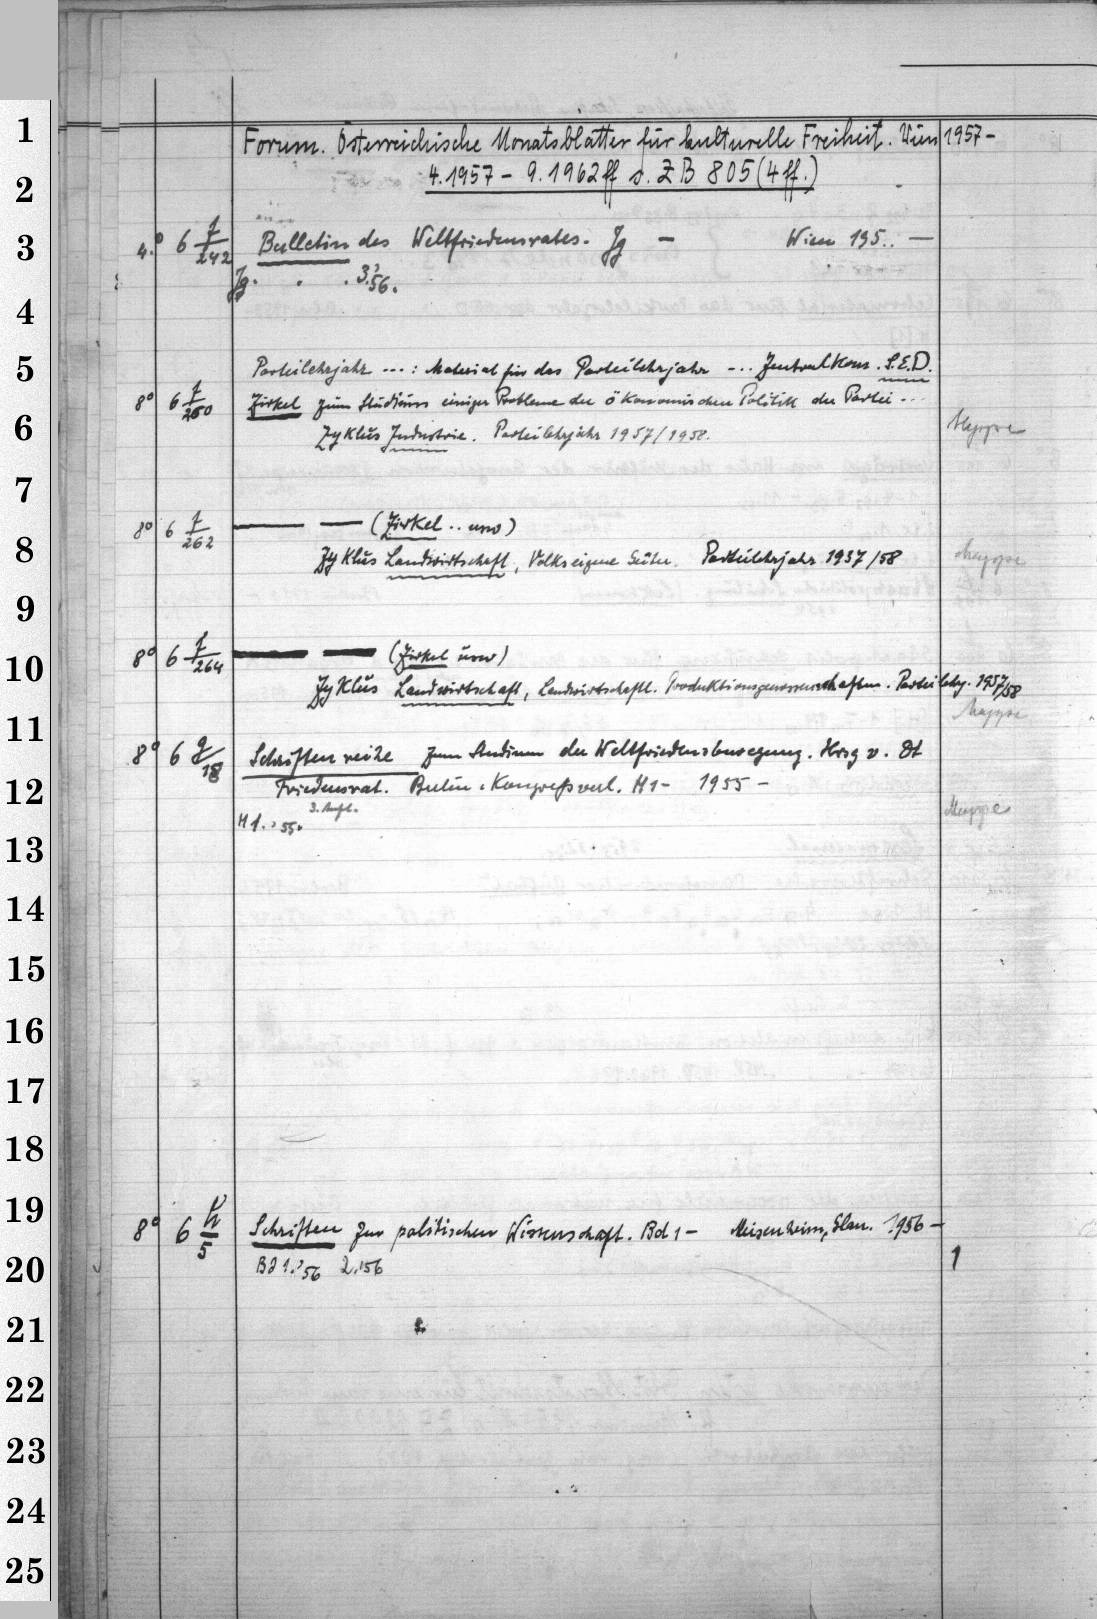 1
Forum. Österreichische Monatsblätter für kulturelle Freiheit. Wien 1957-
2
4.1957 - 9.1962 ff s. ZB 805 (4 ff.)
3
4.° 6 f/242 Bulletin des Weltfriedensrates. Jg - Wien 195.. —
Jg. . . 3.'56.
4
5
Parteilehrjahr ... : Material für das Parteilehrjahr ... Zentralkom. S.E.D.
8° 6 f/260 Zirkel zum Studium einiger Probleme der ökonomischen Politik der Partei ...
6
Mappe
Zyklus Industrie. Parteilehrjahr 1957/1958.
7
8° 6 f/262 — — (Zirkel .. usw)
8
Zyklus Landwirtschaft, Volkseigene Güter. Parteilehrjahr 1957/58
Mappe
9
8° 6 f/264 — — (Zirkel usw)
10
Zyklus Landwirtschaft, Landwirtschaftl. Produktionsgenossenschaften. Parteilehrj. 1957/58
Mappe
11
8° 6 g/18 Schriftenreihe zum Studium der Weltfriedensbewegung. Hrsg v. Dt
12
Friedensrat. Berlin: Kongreßverl. H 1- 1955 -
3. Aufl.
Mappe
H 1.'55.
13
14
15
16
17
18
19
8° 6 h/5 Schriften zur politischen Wissenschaft. Bd 1 - Meisenheim, Glan. 1956 -
20
Bd 1.'56 2.'56
1
21
22
23
24
25